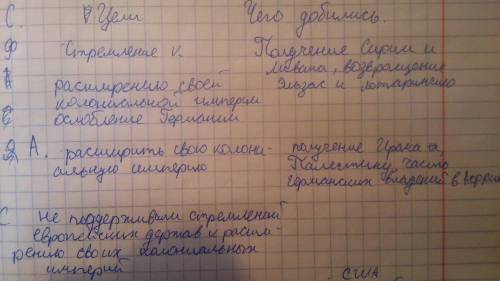 С. Цели Чего добились.
Ф Стремление к Получение Сирии и
Ливана, возвращение
расширению своей Эльзас и Лотарингию
колониальной империи
ослобление Германии
А. расширить свою колони- получение Ирака а
альную империю Палестину, часть
германских владений в Африке
С не поддерживали стремлений
европейских держав к расши-
рению своих колониальных
империй
США